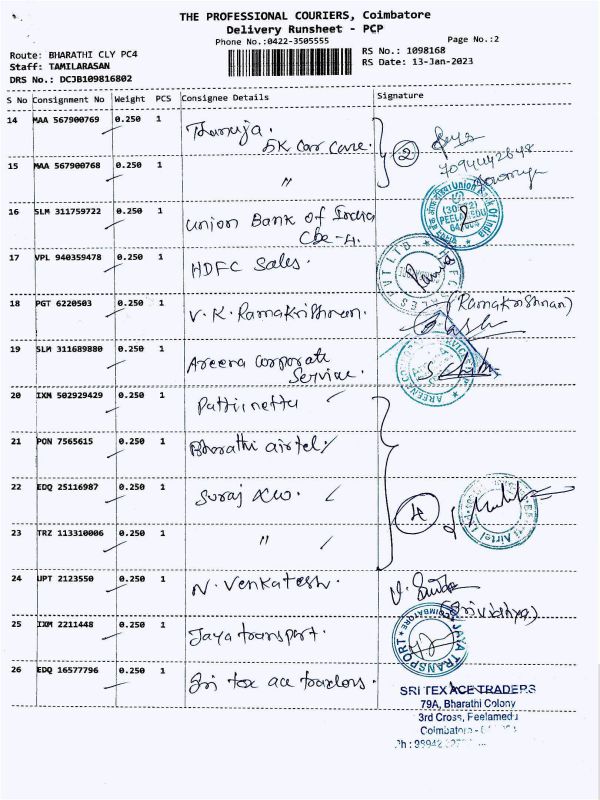 THE PROFESSIONAL COURIERS, Coimbatore
Delivery Runsheet - PCP
Phone No.:0422-3505555
Page No.:2
Route: BHARATHI CLY PC4
RS No.: 1098168
Staff: TAMILARASAN
RS Date: 13-Jan-2023
DRS No.: DCJB109816802
S No Consignment No Weight PCS Consignee Details Signature
14 MAA 567900769 0.250 1 Thanuja.
5K Car Care. 2
7094442648
15 MAA 567900768 0.250 1 "
16 SLM 311759722 0.250 1 Union Bank of India
Cbe-4.
17 VPL 940359478 0.250 1 HDFC Sales.
18 PGT 6220503 0.250 1 V.K. Ramakrishnan. (Ramakrishnan)
19 SLM 311689880 0.250 1 Areena Corporate
Service.
20 IXM 502929429 0.250 1
21 PON 7565615 0.250 1 Bharathi airtel.
22 EDQ 25116987 0.250 1 Suraj 4
23 TRZ 113310006 0.250 1 "
24 UPT 2123550 0.250 1 N. Venkatesh.
(Srividhya)
25 IXM 2211448 0.250 1 Jaya transport.
COIMBATORE JAYA TRANSPORT
26 EDQ 16577796 0.250 1 Sri tex ace traders.
SRI TEX ACE TRADERS
79A, Bharathi Colony
3rd Cross, Peelamedu
Coimbatore -